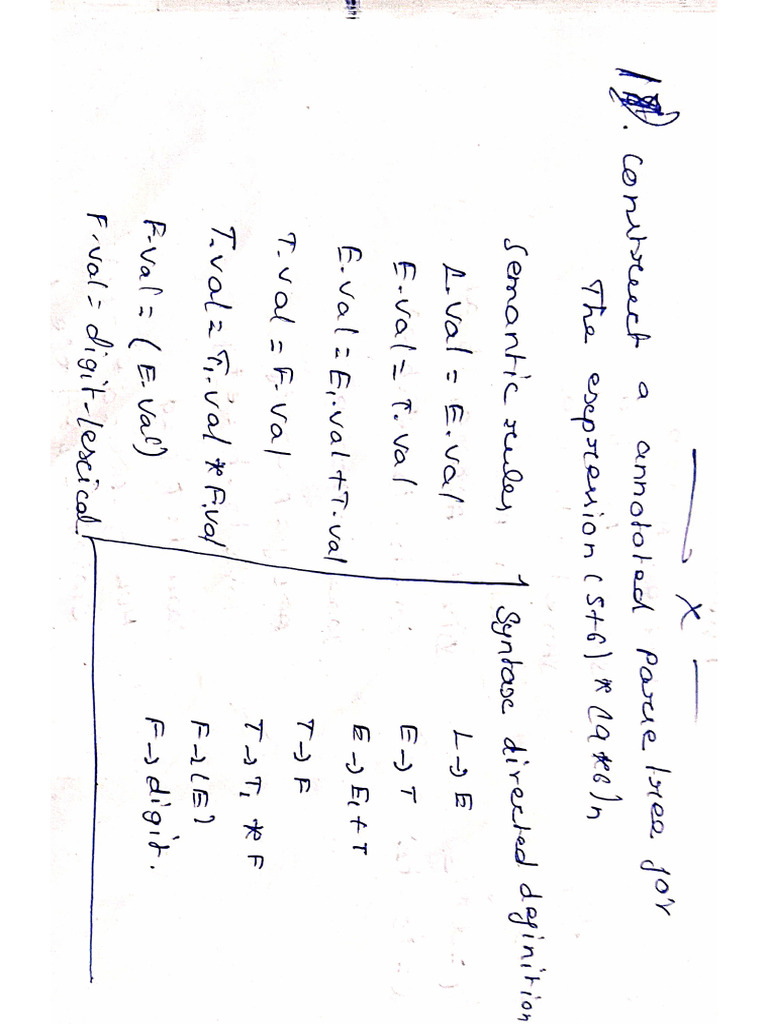 X
1). Construct a annotated Parse tree for
The expression (5+6) * (9*6)n
Semantic rules Syntax directed definition
L.val = E.val L→E
E.val = T.val E→T
E.val = E₁.val + T.val E→E₁ + T
T.val = F.val T→F
T.val = T₁.val * F.val T→T₁ * F
F.val = (E.val) F→(E)
F.val = digit-lexical F→digit.